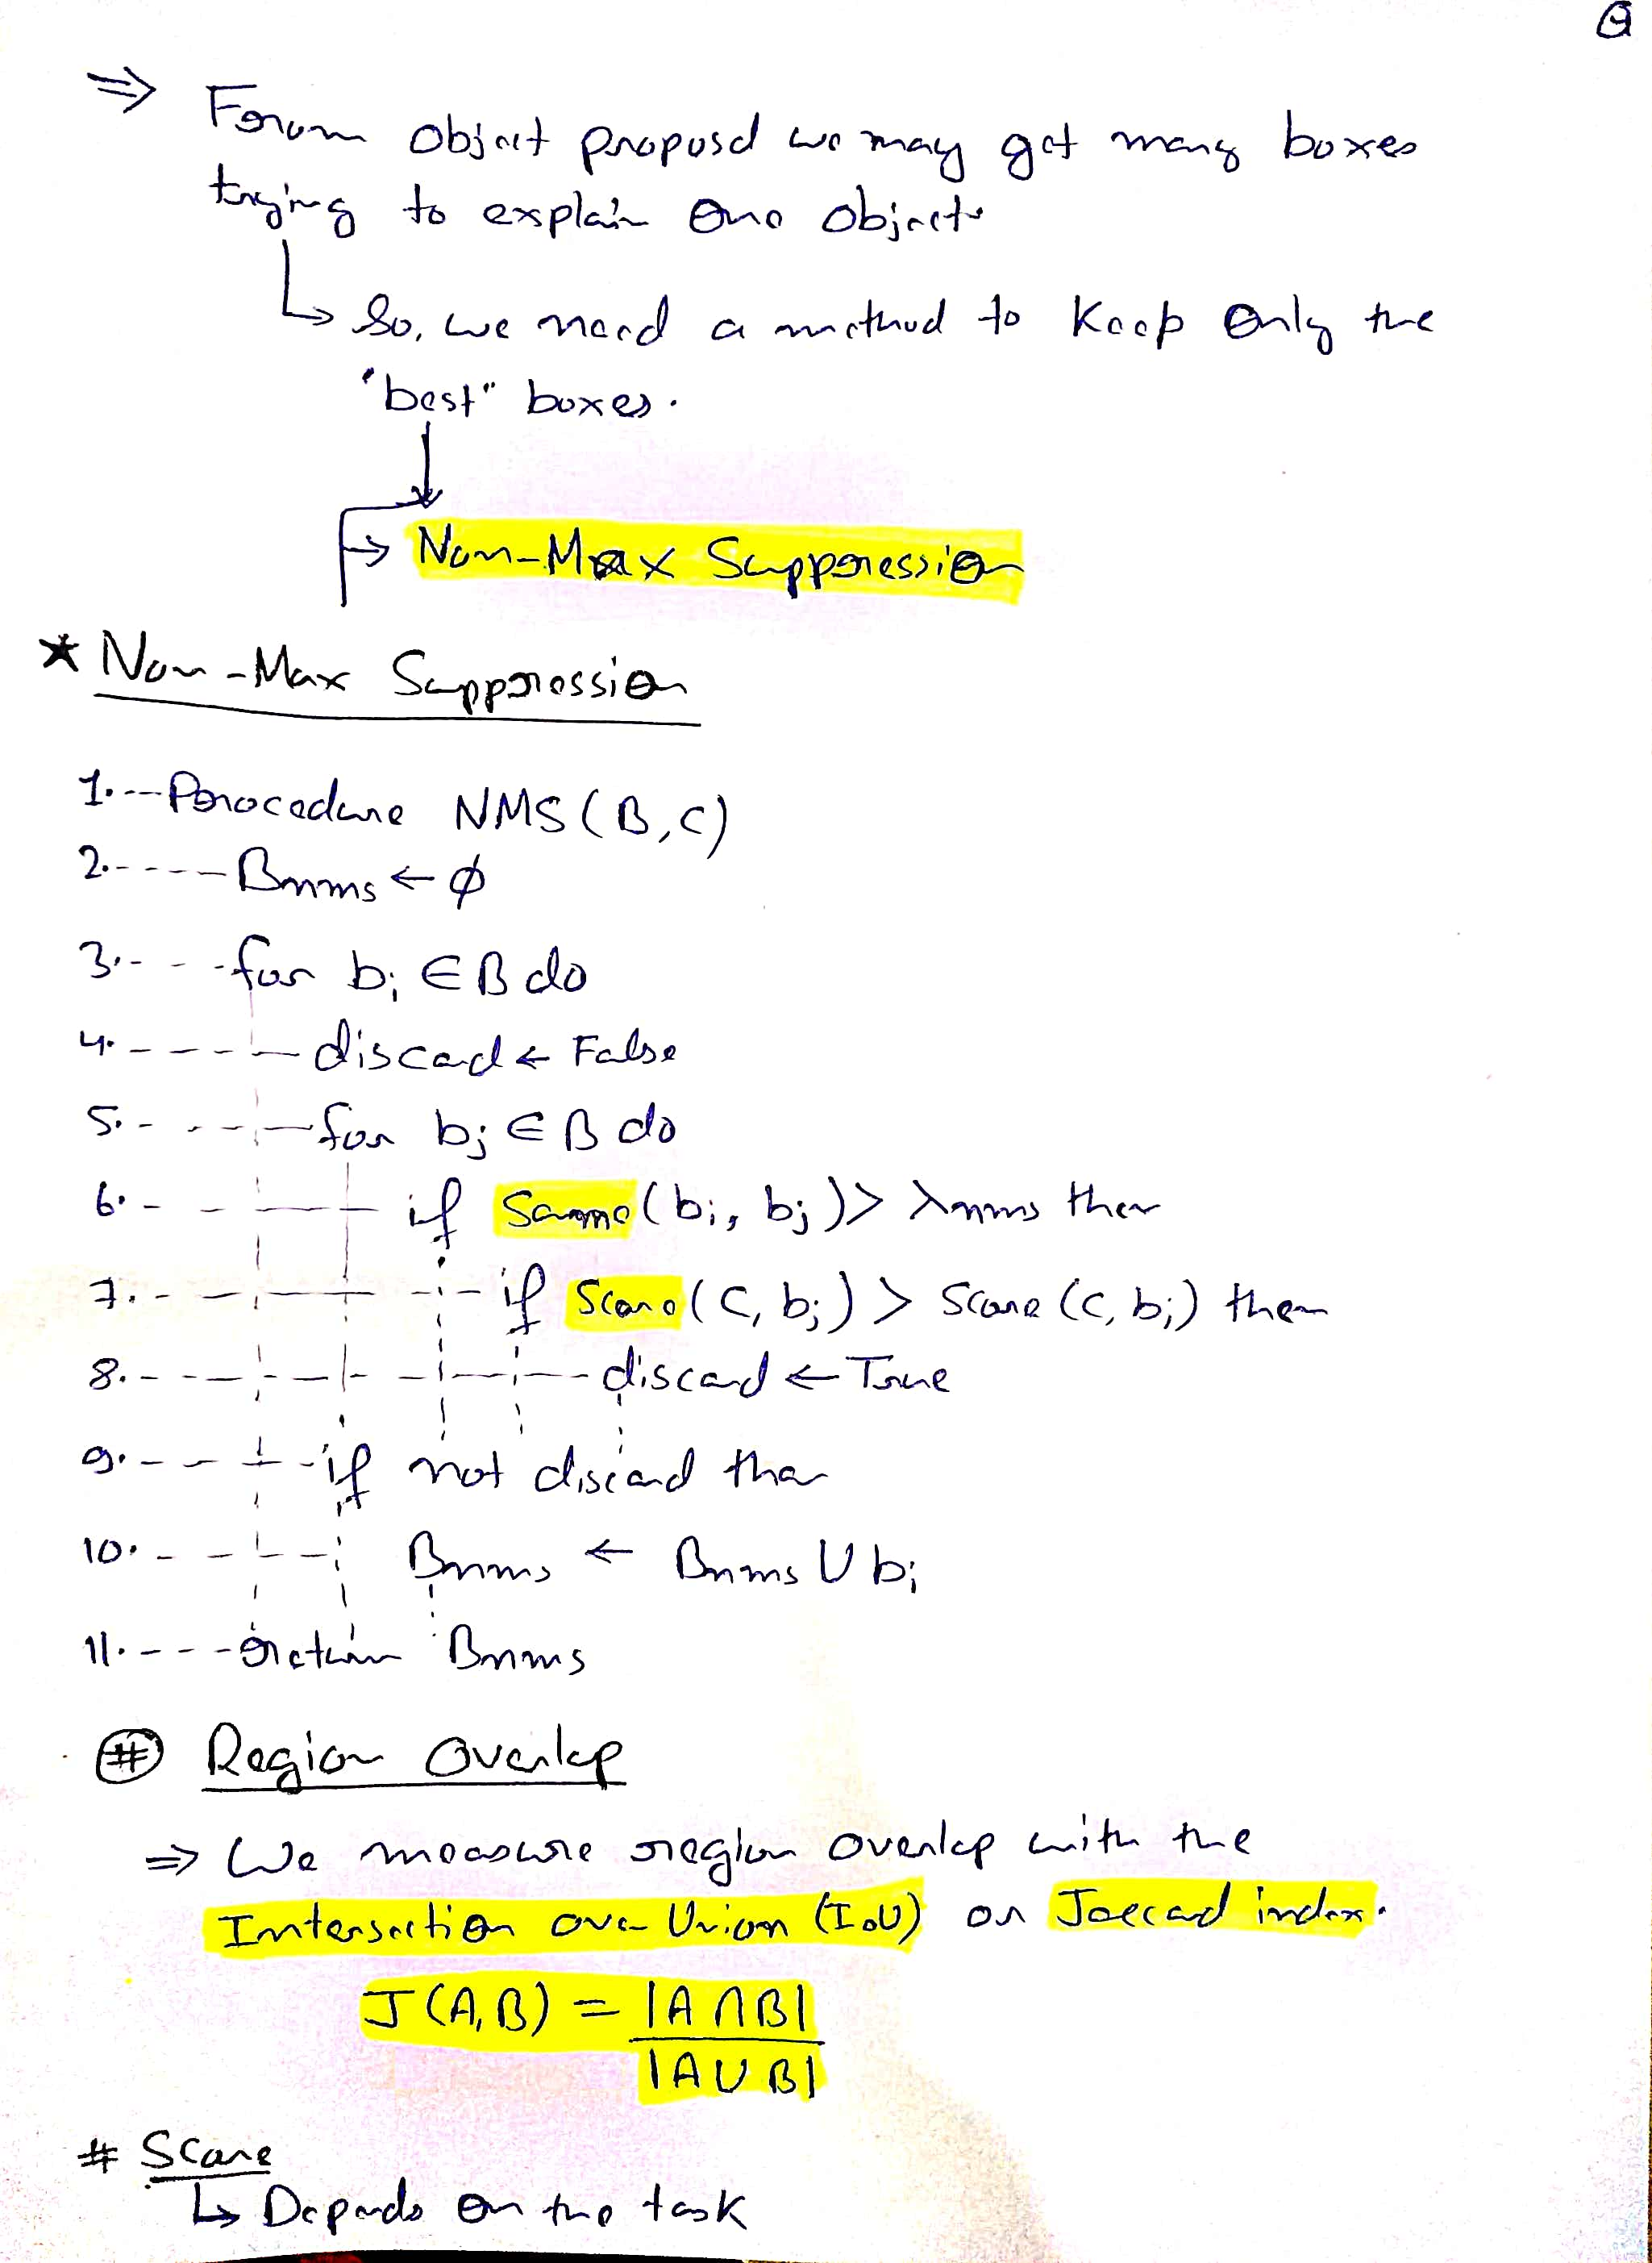 ⇒ From object proposal we may get many boxes
trying to explain one object.
↳ So, we need a method to keep only the
"best" boxes.
→ Non-Max Suppression
* Non-Max Suppression
1.--Procedure NMS(B,C)
2.-----Bnms ← ϕ
3.----for bi ∈ B do
4.-----discard ← False
5.------for bj ∈ B do
6.- if Same(bi, bj) > λnms then
7.- if Score(C, bj) > Score(C, bi) then
8.- discard ← True
9.- if not discard then
10.- Bnms ← Bnms ∪ bi
11.---return Bnms
# Region Overlap
⇒ We measure region overlap with the
Intersection over Union (IoU) or Jaccard index.
J(A,B) = |A∩B|
|A∪B|
# Score
↳ Depends on the task